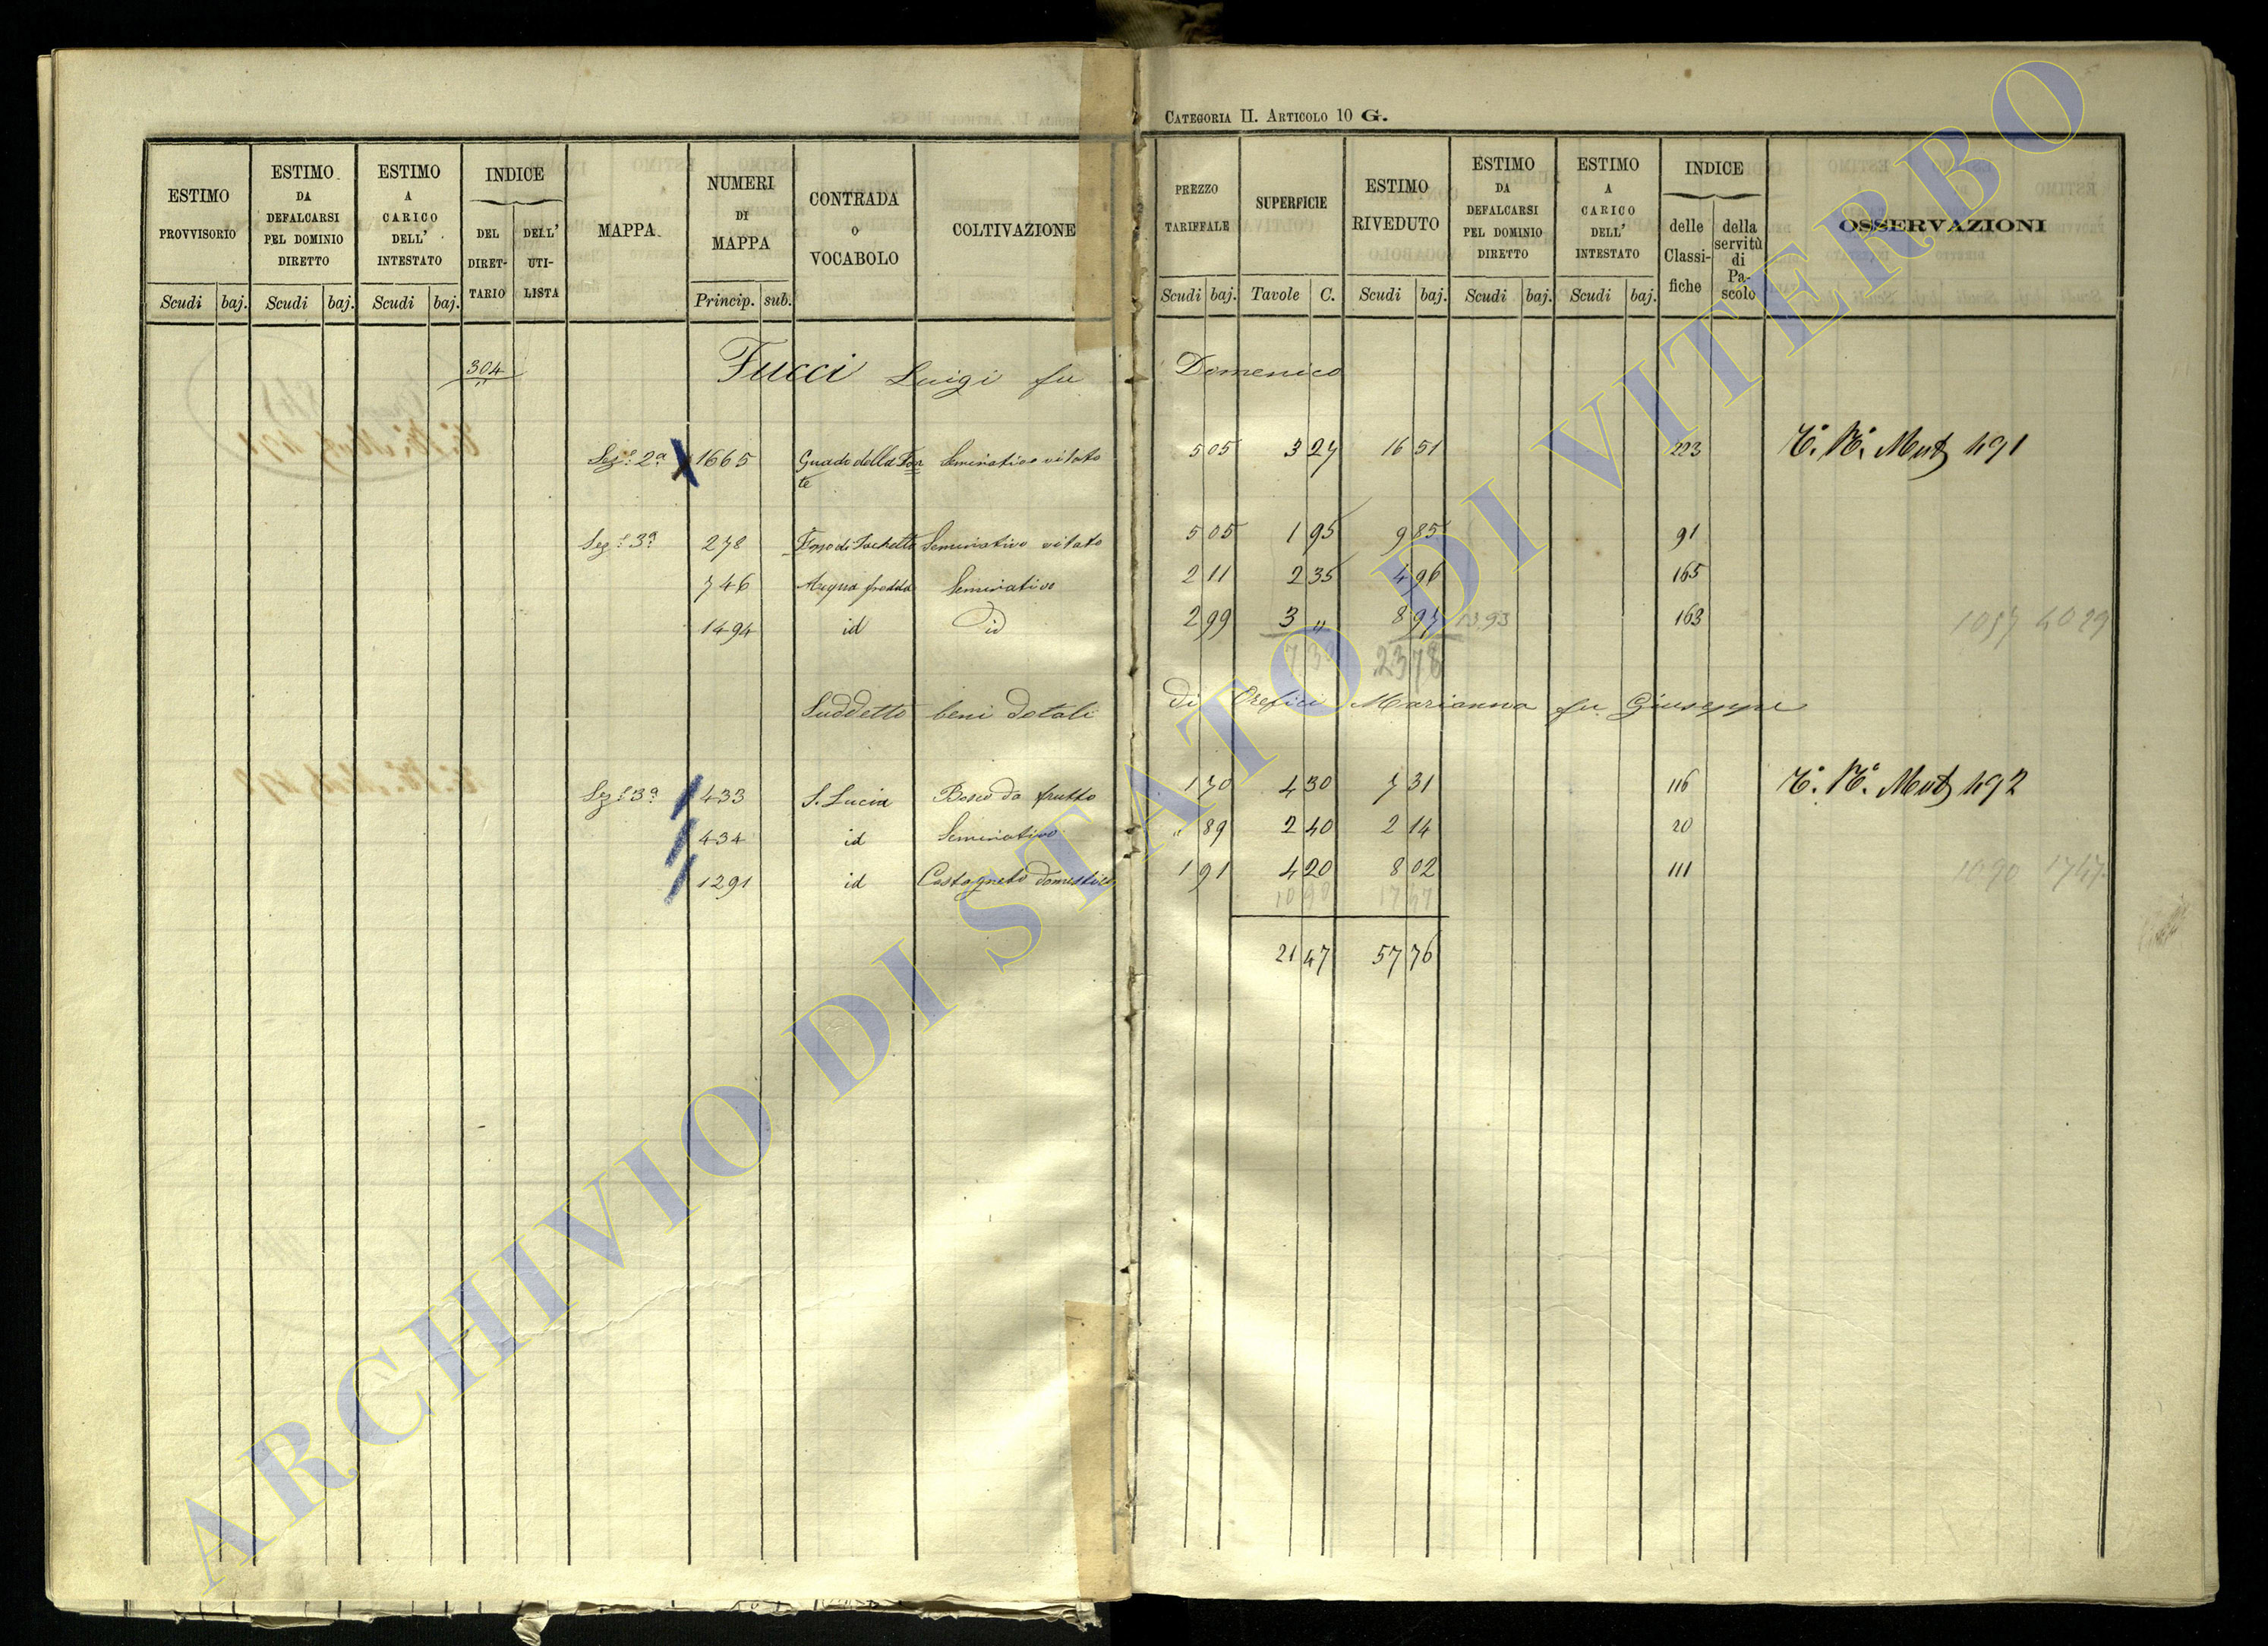 CATEGORIA II. ARTICOLO 10 G.
ESTIMO PROVVISORIO Scudi baj. ESTIMO DA DEFALCARSI PEL DOMINIO DIRETTO Scudi baj. ESTIMO A CARICO DELL' INTESTATO Scudi baj. INDICE DEL DIRET-TARIO DELL' UTI-LISTA MAPPA NUMERI DI MAPPA Princip. sub. CONTRADA O VOCABOLO COLTIVAZIONE PREZZO TARIFFALE Scudi baj. SUPERFICIE Tavole C. ESTIMO RIVEDUTO Scudi baj. ESTIMO DA DEFALCARSI PEL DOMINIO DIRETTO Scudi baj. ESTIMO A CARICO DELL' INTESTATO Scudi baj. INDICE delle Classi-fiche della servitù di Pa-scolo OSSERVAZIONI
304 Fucci Luigi fu Domenico
Sez.e 2a 1665 Guado della Fon Seminativo vitato 5 05 3 27 16 51 223 Mut 491
te
Sez.e 3a 278 Fosso di Sachetto Seminativo vitato 5 05 1 95 9 85 91
746 Acqua fredda Seminativo 2 11 2 35 4 96 165
1494 id id 2 99 3 „ 8 97 13.93 163 1057 4029
7 30 23 78
Suddetto beni dotali di Orefici Marianna fu Giuseppe
Sez.e 3a 433 S. Lucia Bosco da frutto 1 70 4 30 7 31 116 Mut 492
434 id Seminativo „ 89 2 40 2 14 20
1291 id Castagneto domestico 1 91 4 20 8 02 111 1090 1747
10 90 17 47
21 47 57 76
ARCHIVIO DI STATO DI VITERBO